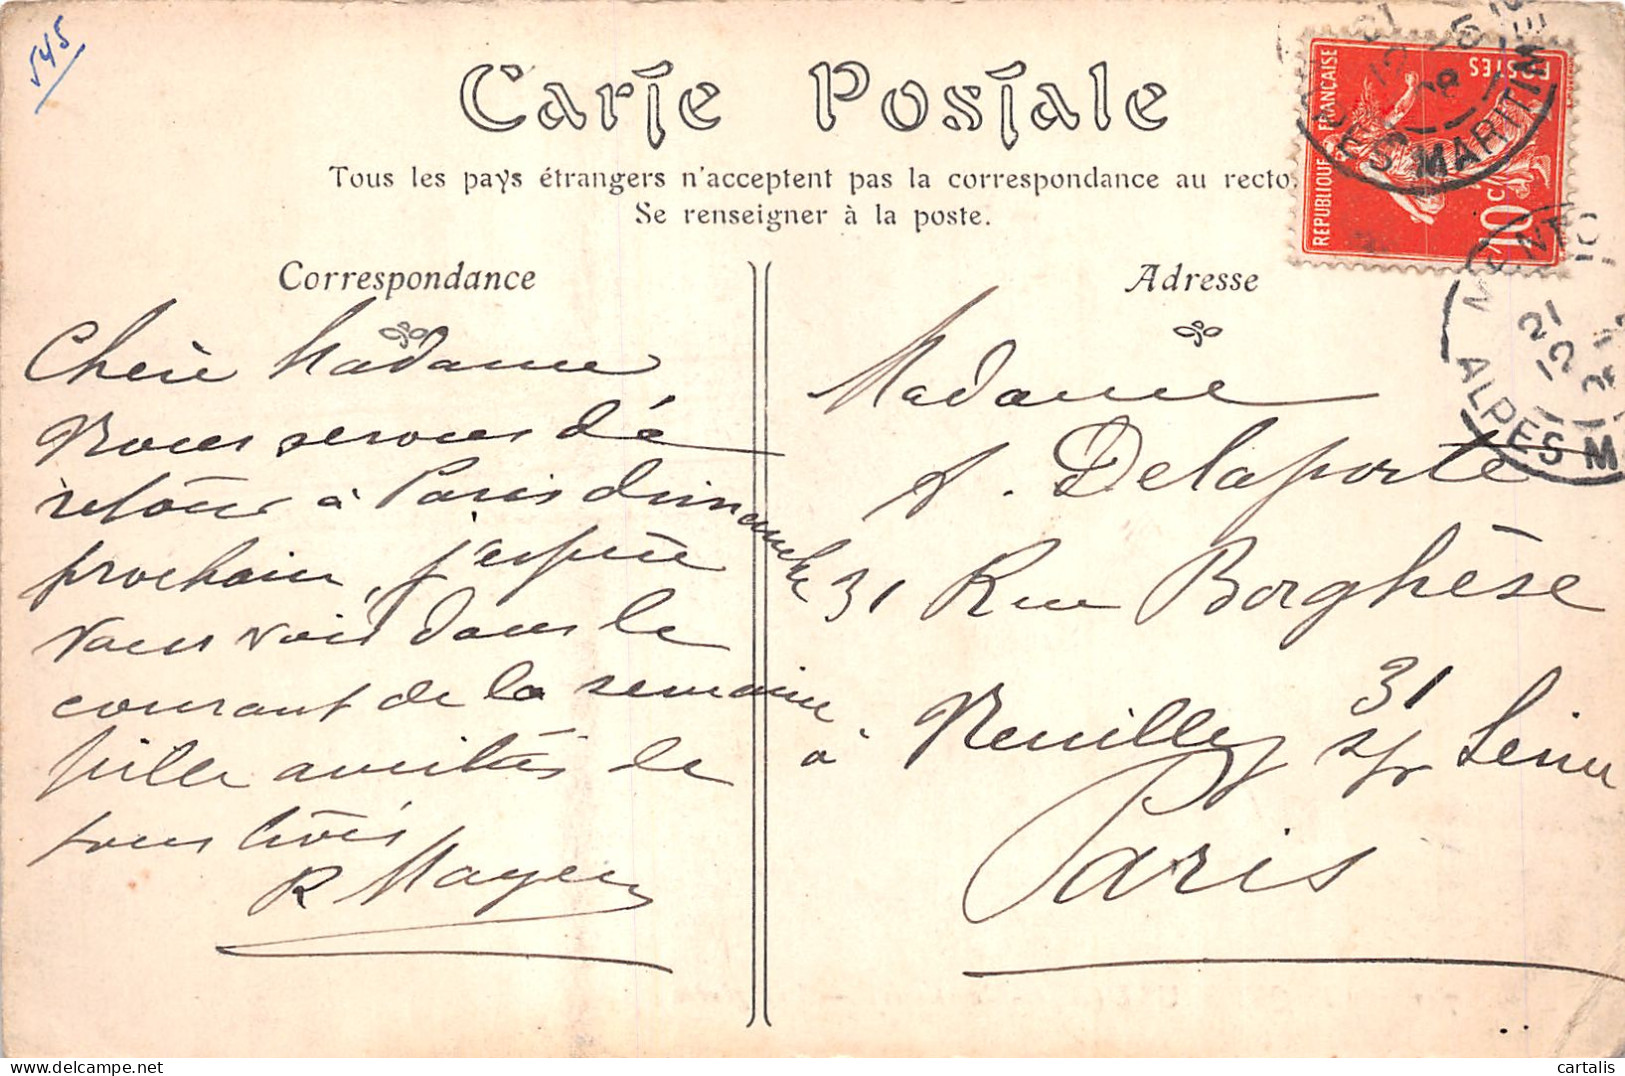 545
Carte Postale
Tous les pays étrangers n'acceptent pas la correspondance au recto.
Se renseigner à la poste.
Correspondance
Chère Madame,
Nous serons de
retour à Paris dimanche
prochain, j'espère
vous voir dans le
courant de la semaine
mille amitiés de
tous trois
R Mayer
Adresse
Madame
A. Delaporte
31 Rue Borghèse
31
à Neuilly s/r Seine
Paris
REPUBLIQUE FRANÇAISE
POSTES
10c
ALPES MARITIMES
21
12
08
MENTON
21
12
ALPES M
cartalis